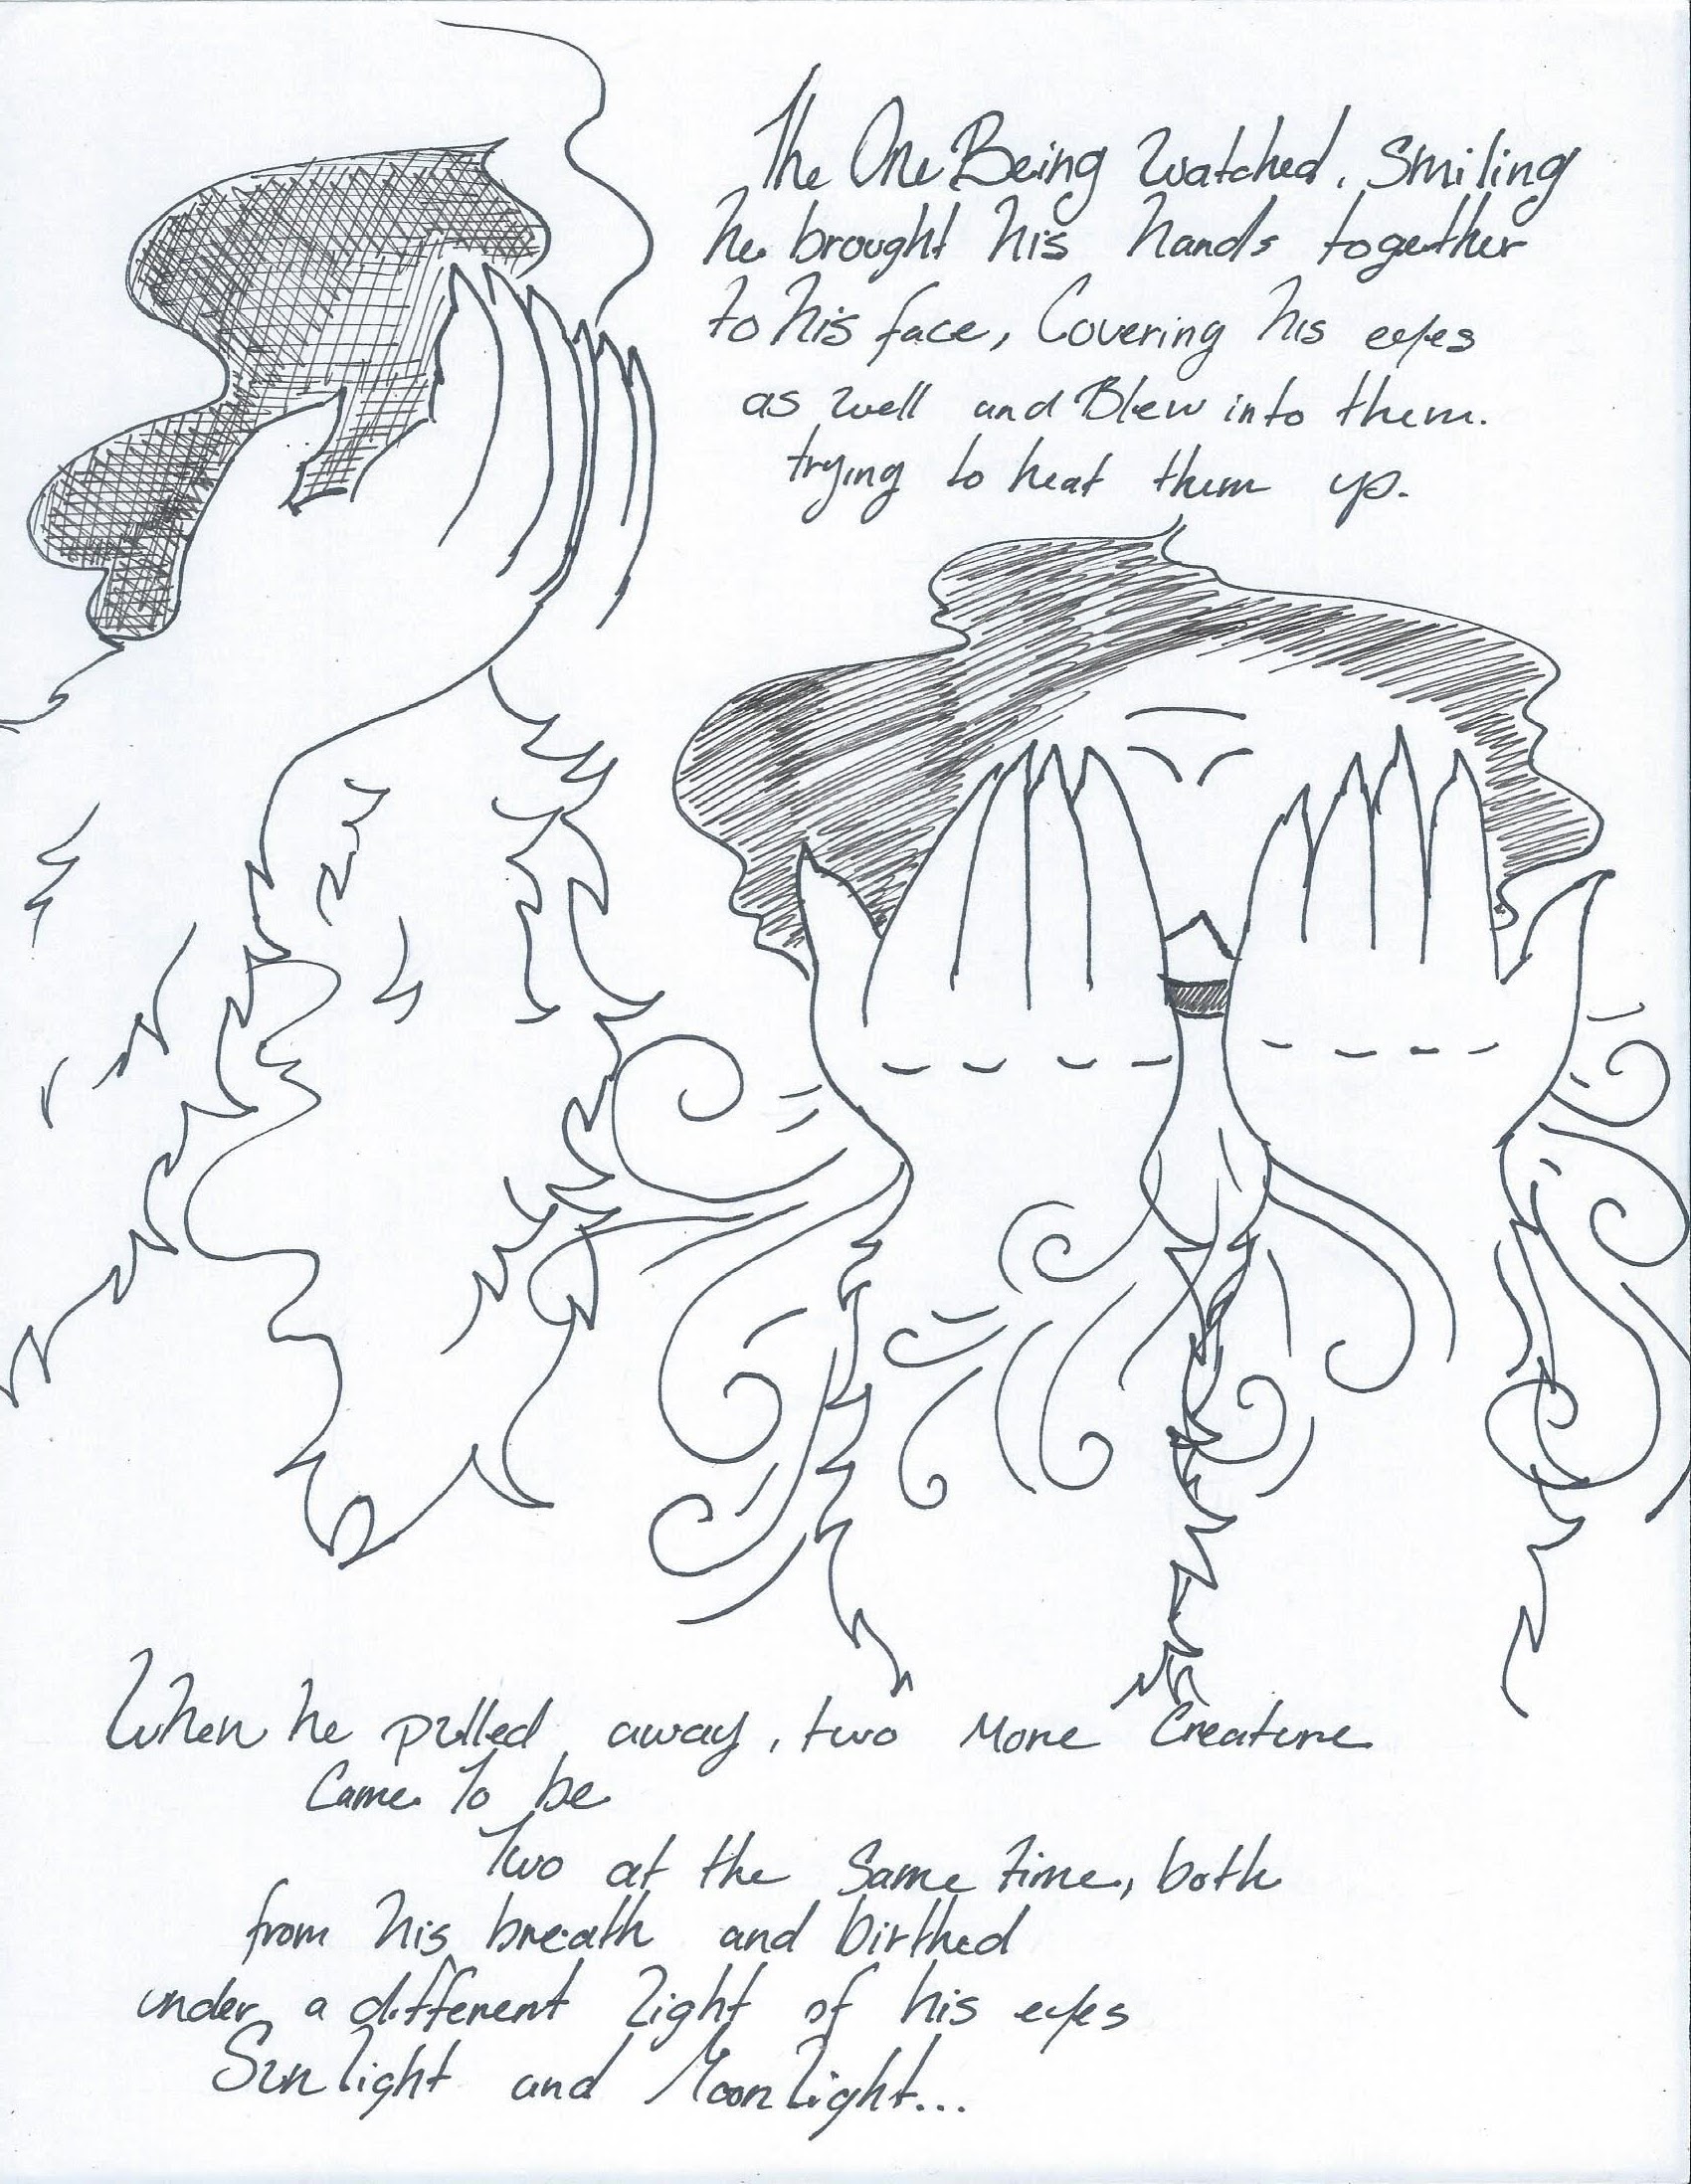 The One Being watched. Smiling
he brought his hands together
to his face, Covering his eyes
as well and Blew into them.
trying to heat them up.
When he pulled away, two More Creature
Came To be
Two at the Same time, both
from his breath and birthed
under a different light of his eyes
Sunlight and Moonlight...